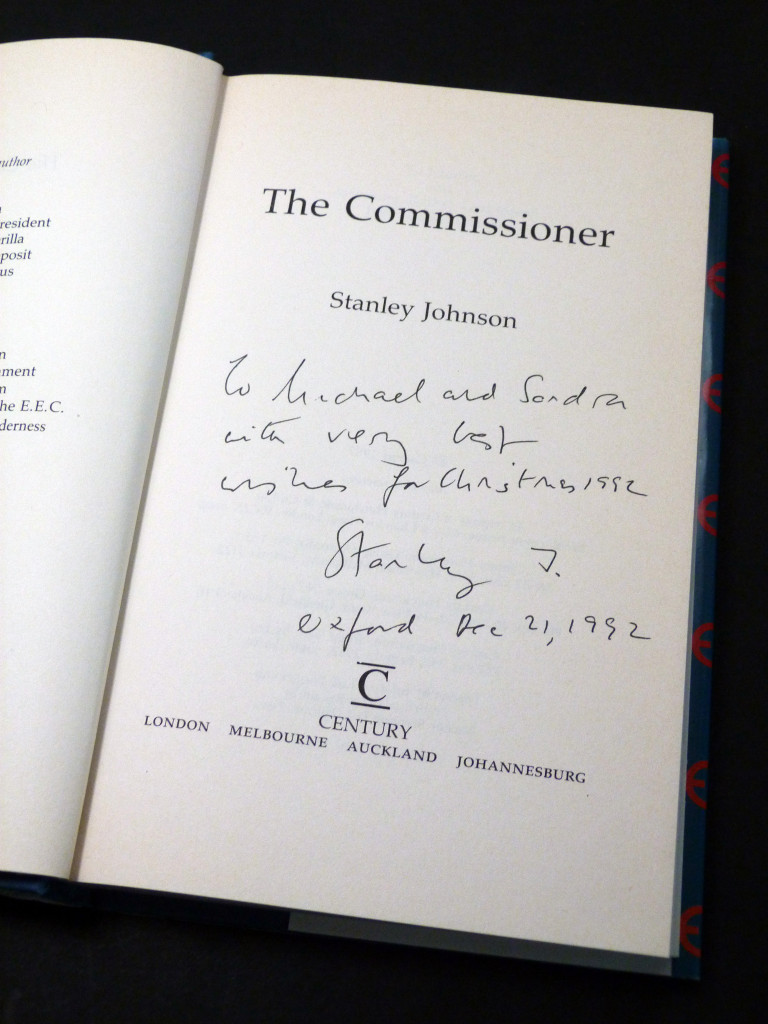 author
resident
rilla
posit
us
n
nment
n
he E.E.C.
derness
The Commissioner
Stanley Johnson
To Michael and Sandra
with very best
wishes for Christmas 1992
Stanley J.
Oxford Dec 21, 1992
C
CENTURY
LONDON MELBOURNE AUCKLAND JOHANNESBURG